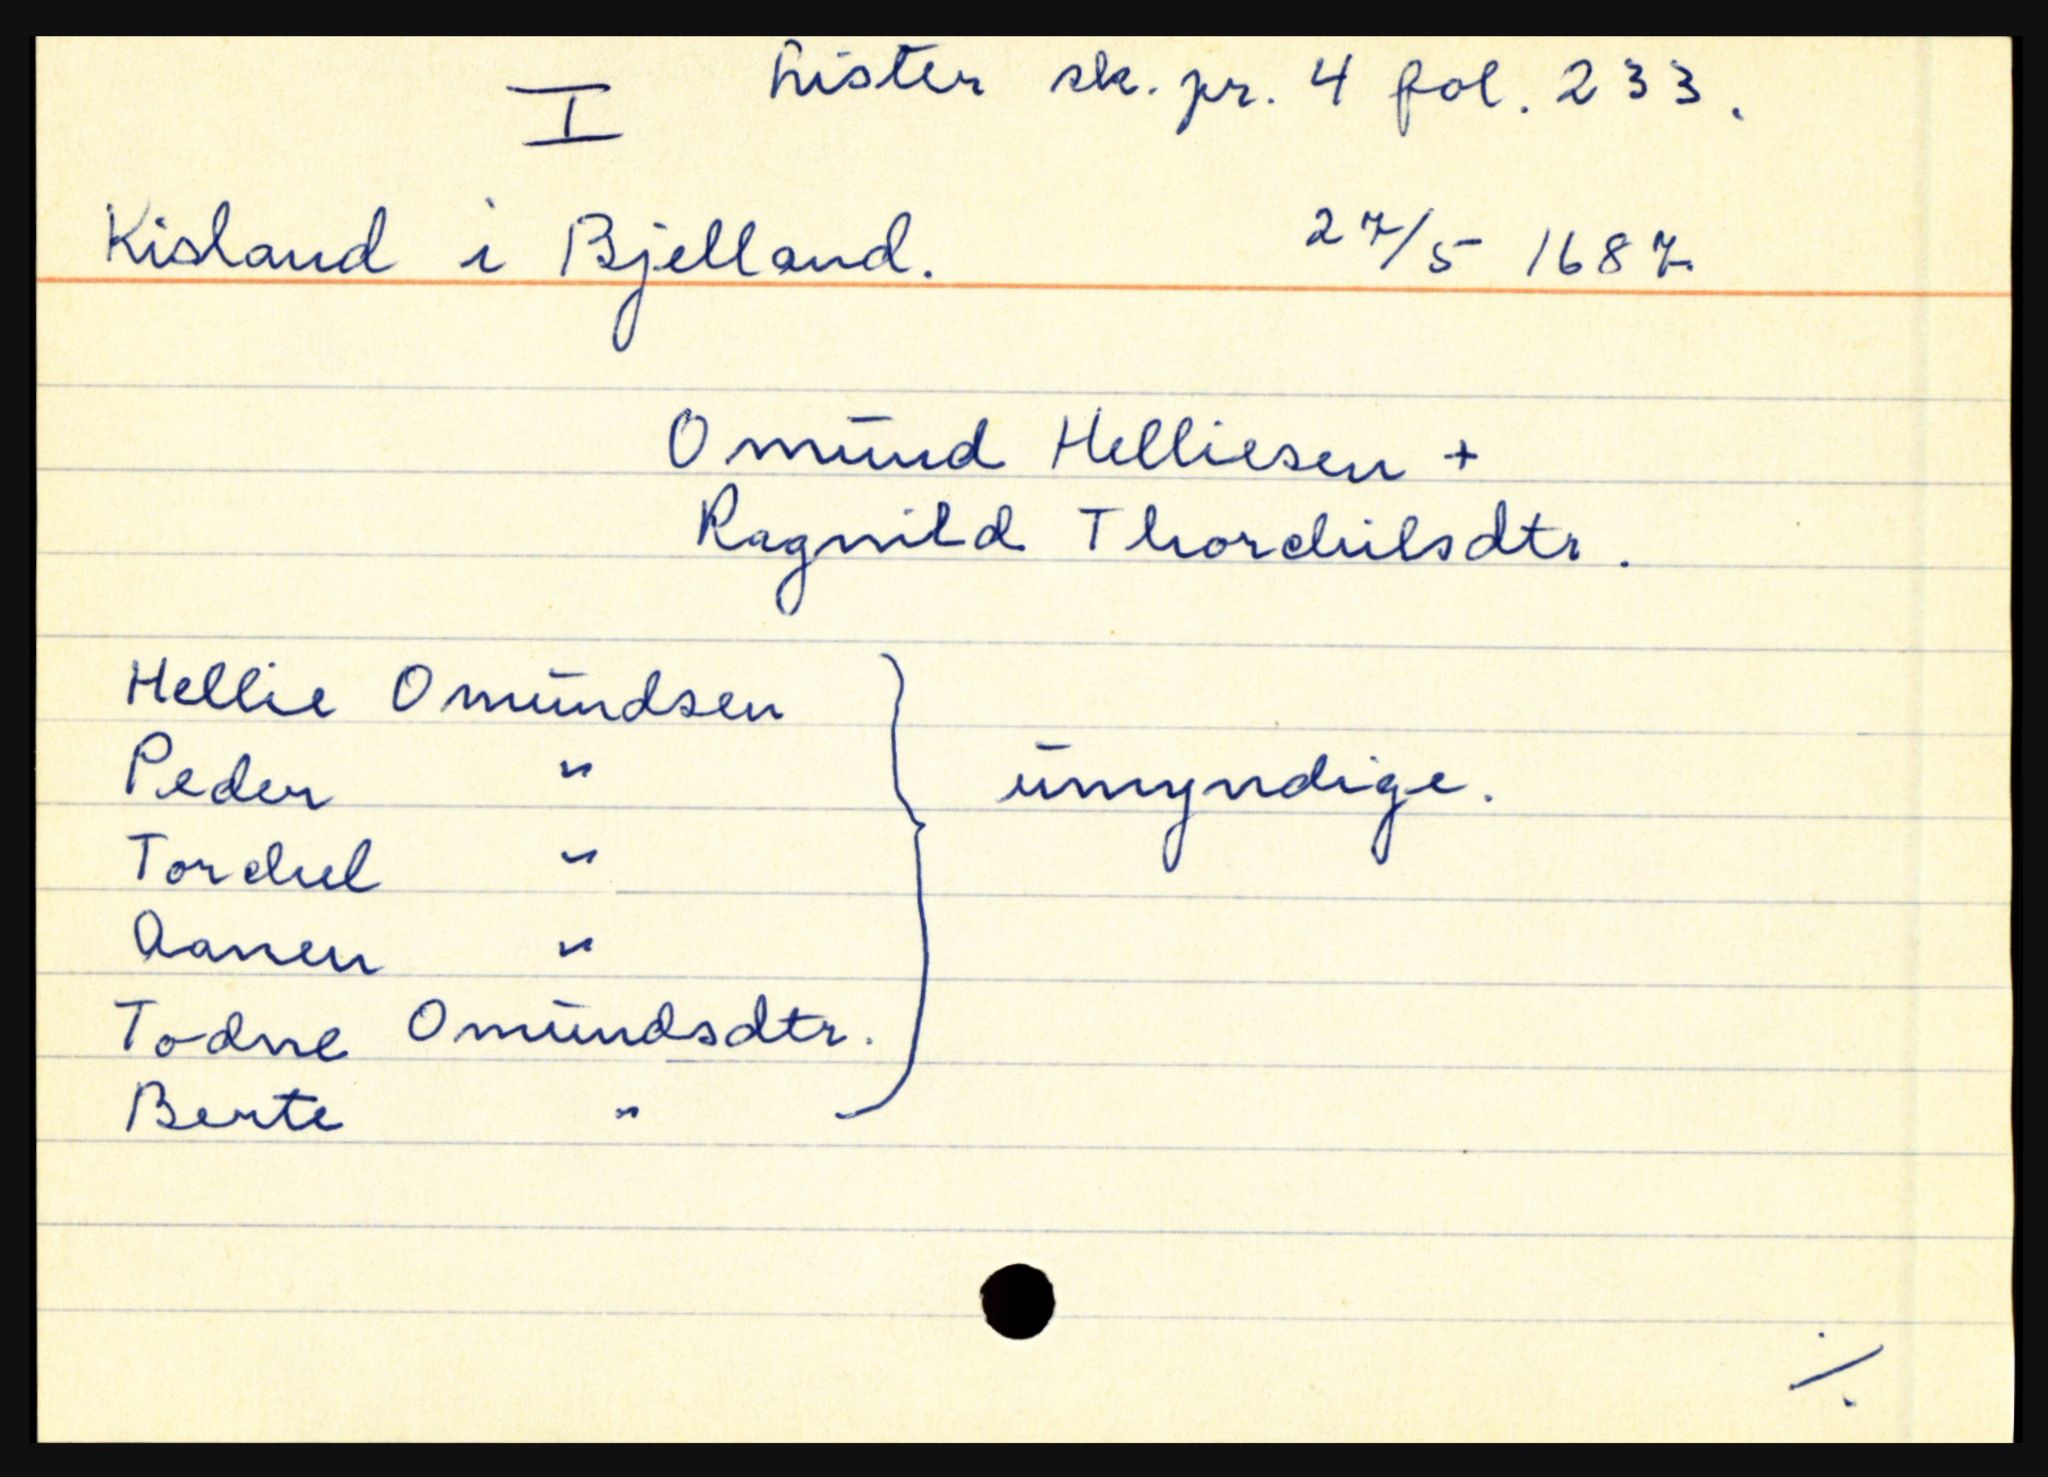 I Lister sk. pr. 4 fol. 233.
Kisland i Bjelland. 27/5 1687
Omund Helliesen +
Ragnild Thorchilsdtr.
Hellie Omundsen
Peder "
umyndige.
Torchel "
Aanen "
Todne Omundsdtr.
Berte "
./.